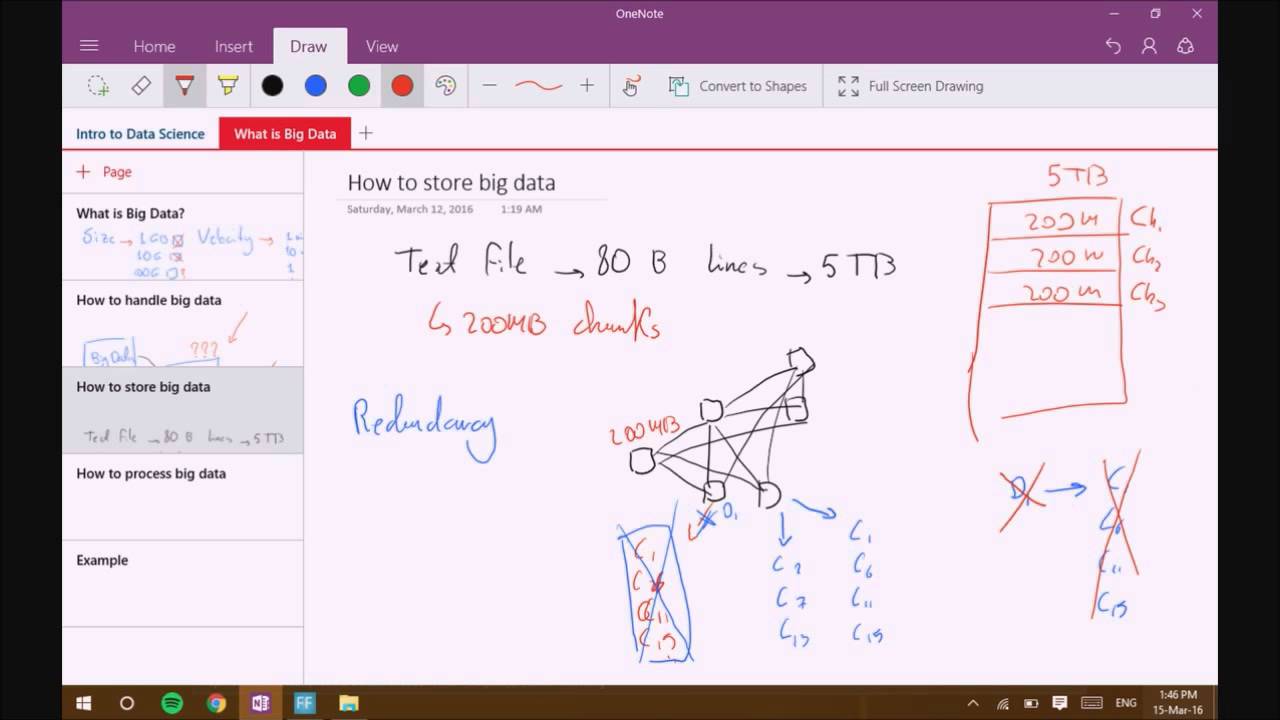 OneNote
Home Insert Draw View
Convert to Shapes Full Screen Drawing
Intro to Data Science What is Big Data
Page
What is Big Data?
Size → 1GB Velocity →
10G
How to handle big data
???
Big Data
How to store big data
Text File → 80 B lines → 5TB
How to process big data
Example
How to store big data
Saturday, March 12, 2016 1:19 AM
Text File → 80 B lines → 5TB
↳ 200MB chunks
Redundancy
200MB
D1
C1
C11
C19
C2
C7
C1
C6
C11
C19
5TB
200M Ch1
200M Ch2
200M Ch3
D1 → C
C11
C19
ENG
1:46 PM
15-Mar-16